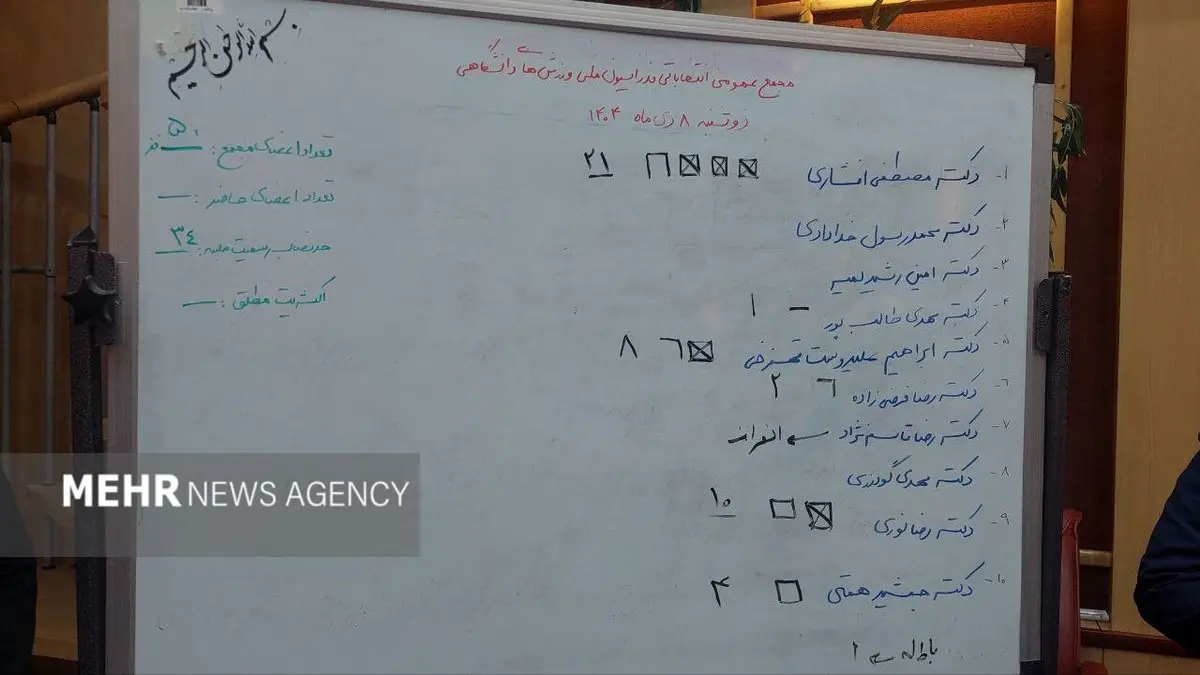 بسم الله الرحمن الرحیم
مجمع عمومی انتخاباتی فدراسیون ملی ورزش های دانشگاهی
دوشنبه ۸ دی ماه ۱۴۰۴
تعداد اعضای مجمع: ۵۱ نفر
تعداد اعضای حاضر: —
حد نصاب رسمیت جلسه: ۳۴
اکثریت مطلق: —
۱- دکتر مصطفی افشاری ۲۱
۲- دکتر محمدرسول خدادادی
۳- دکتر امین رشید لمیر
۴- دکتر مهدی طالب پور – ۱
۵- دکتر ابراهیم علیدوست قهفرخی ۸
۶- دکتر رضا فرضی زاده ۲
۷- دکتر رضا قاسم نژاد انصراف
۸- دکتر مهدی گودرزی
۹- دکتر رضا نوری ۱۰
۱۰- دکتر جمشید همتی ۴
باطله ۱
MEHR NEWS AGENCY